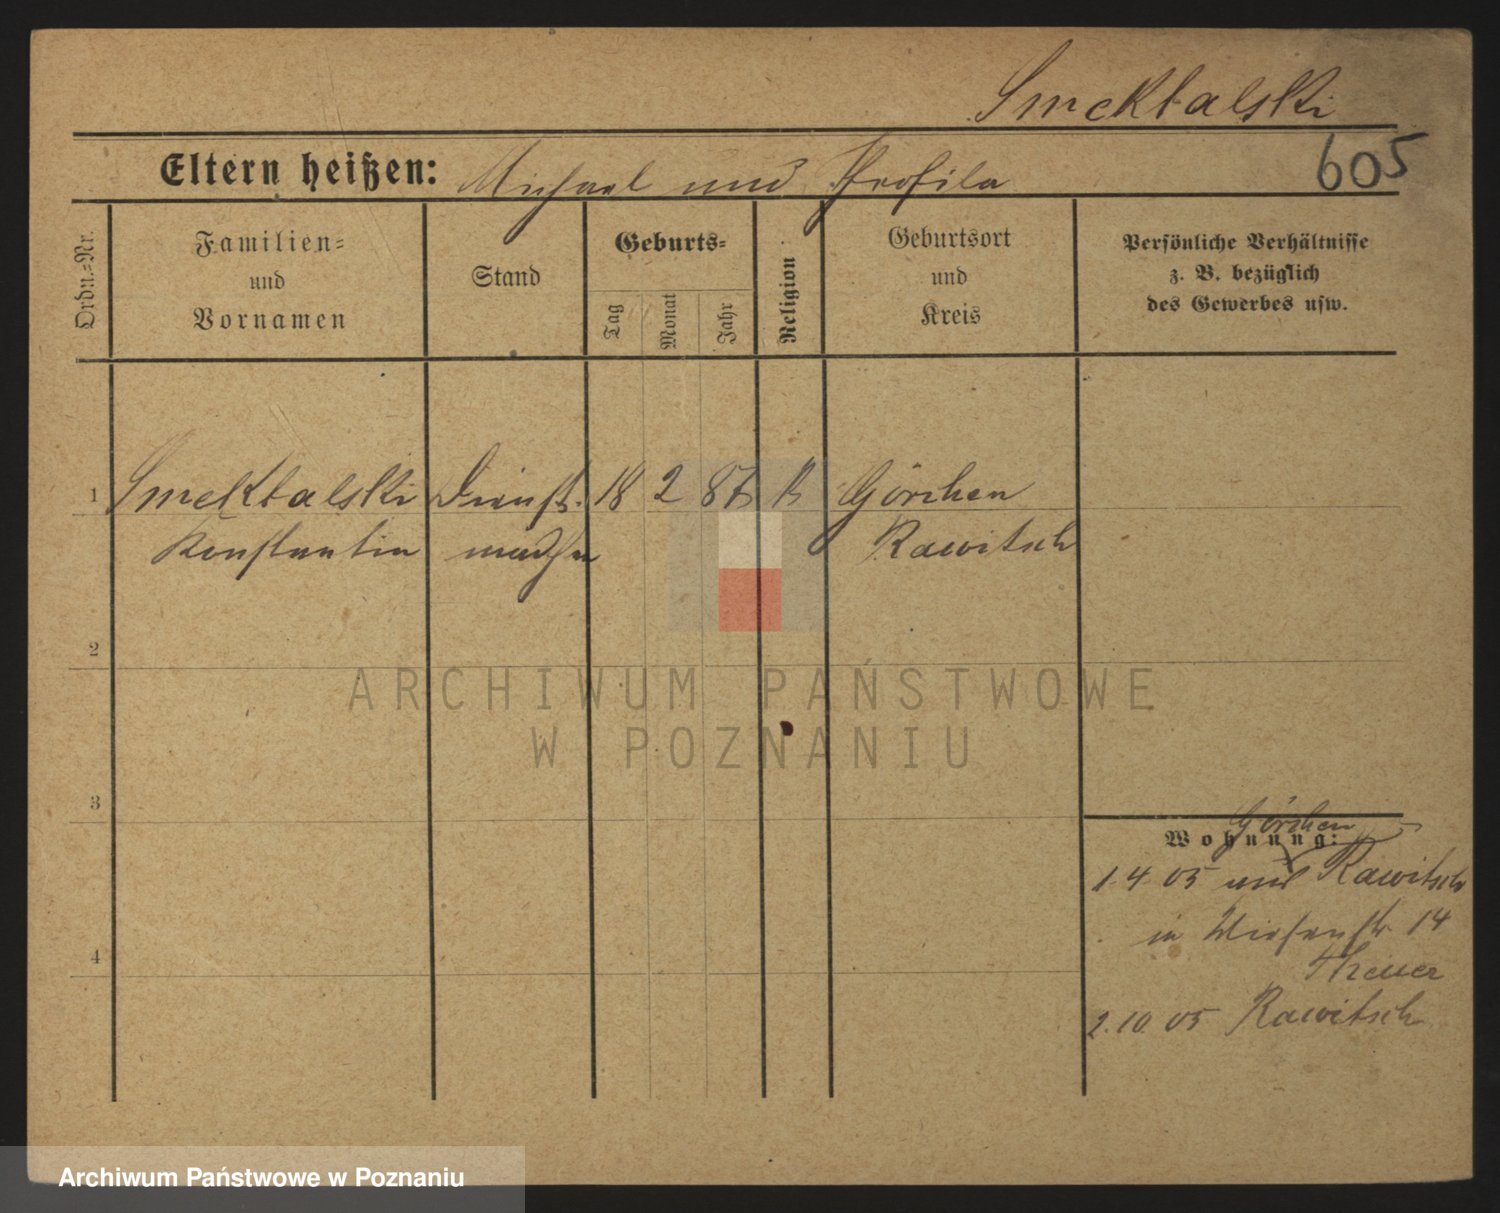 Smektalski
Eltern heißen: Michael und Profila
605
Ordn.-Nr.
Familien-
und
Vornamen
Stand
Geburts-
Tag
Monat
Jahr
Religion
Geburtsort
und
Kreis
Persönliche Verhältnisse
z. B. bezüglich
des Gewerbes usw.
1 Smektalski Dienst. 18 2 Görchen
Konstantin Rawitsch
2
3
4
Görchen
Wohnung:
1.4.05 und Rawitsch
in Wiesenstr. 14
Theuer
2.10.05 Rawitsch
ARCHIWUM PAŃSTWOWE
W POZNANIU
Archiwum Państwowe w Poznaniu